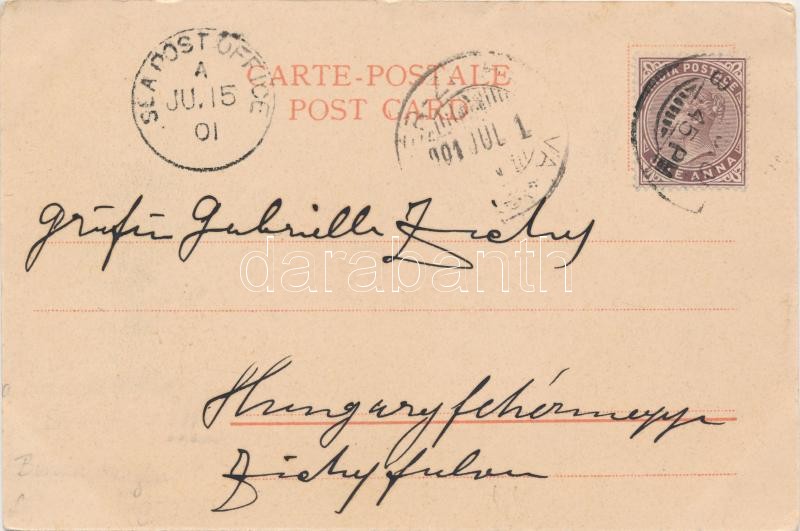 SEA POST OFFICE
A
JU. 15
01
CARTE-POSTALE
POST CARD
901 JUL 1
INDIA POSTAGE
45 P
ONE ANNA
Gräfin Gabrielle Zichy
darabanth
Hungary fehérmegye
Zichyfalva